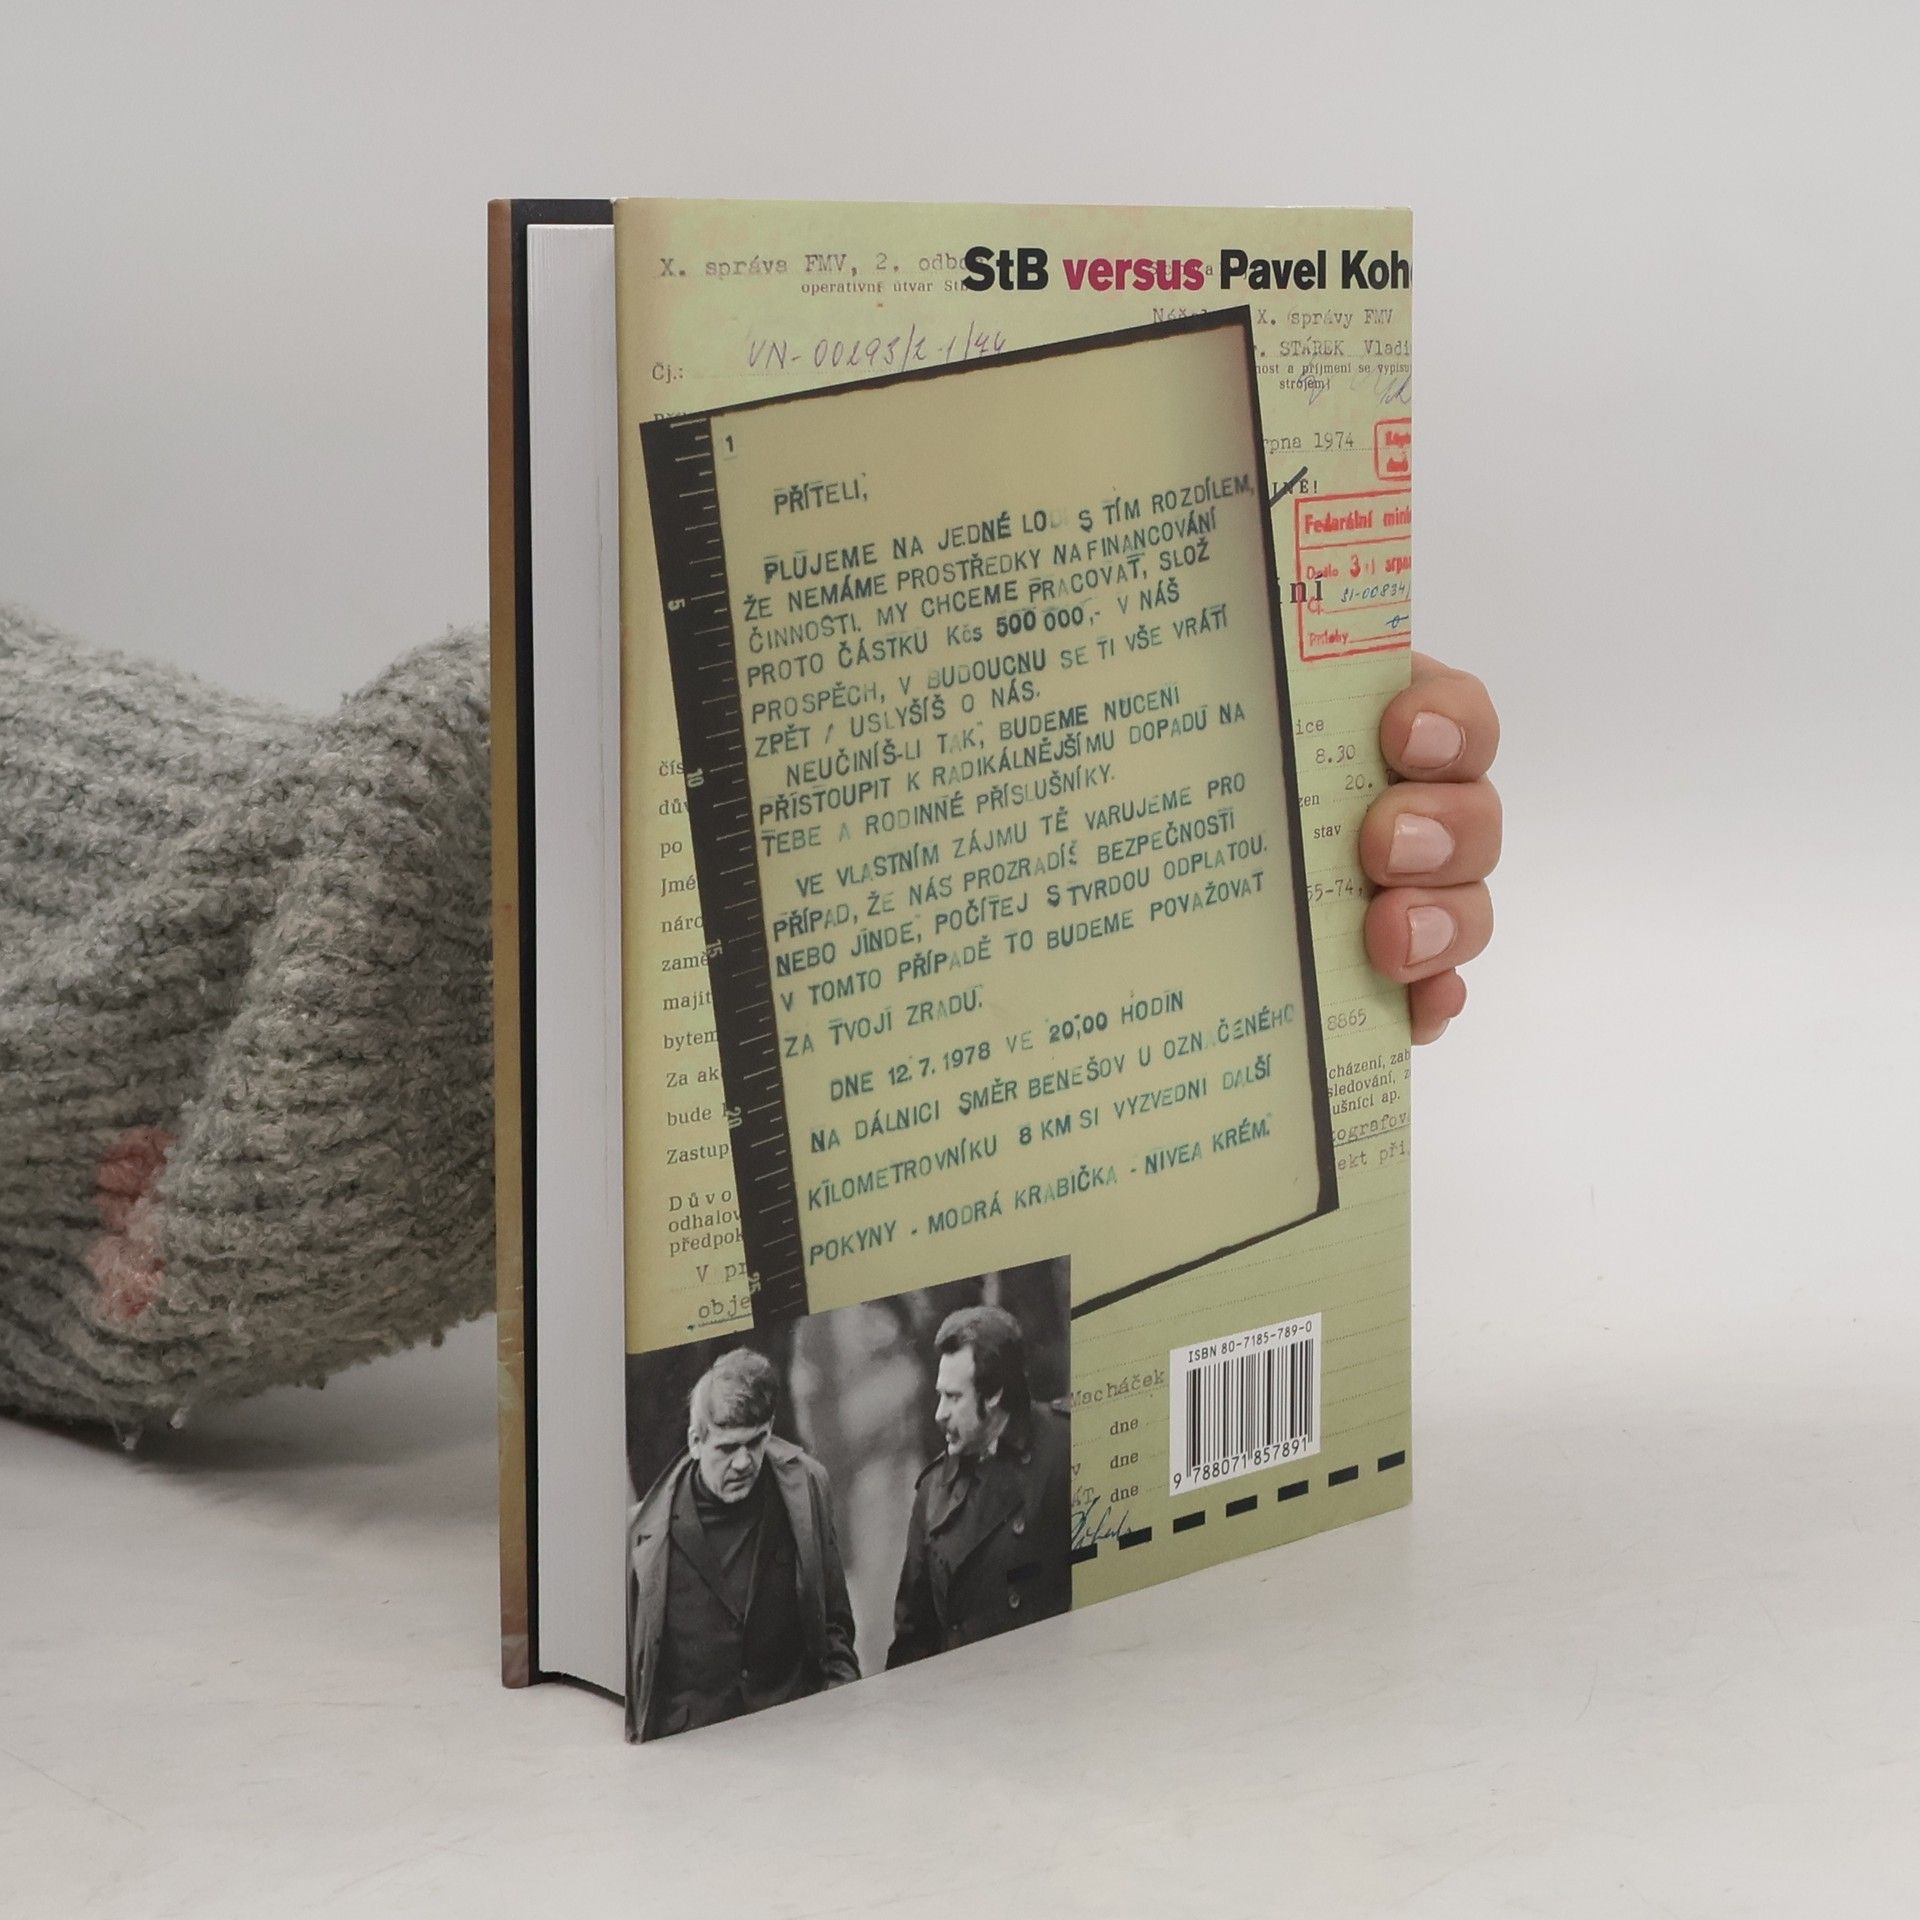 StB versus Pavel Koh
X. správa FMV, 2. odbo
operativní útvar StB
VN-00293/2-1/74
Čj.:
X. správy FMV
STÁREK Vladi
nost a příjmení se vypisu
strojem)
rpna 1974
JNÉ!
Federální mini
Došlo 3
srpna
Čj.
Přílohy
ní
1
PŘÍTELI,
PLUJEME NA JEDNÉ LODI S TÍM ROZDÍLEM,
ŽE NEMÁME PROSTŘEDKY NA FINANCOVÁNÍ
ČINNOSTI. MY CHCEME PRACOVAT, SLOŽ
PROTO ČÁSTKU Kčs 500 000,- V NÁŠ
PROSPĚCH, V BUDOUCNU SE TI VŠE VRÁTÍ
ZPĚT / USLYŠÍŠ O NÁS.
NEUČINÍŠ-LI TAK, BUDEME NUCENI
PŘISTOUPIT K RADIKÁLNĚJŠÍMU DOPADU NA
TEBE A RODINNÉ PŘÍSLUŠNÍKY.
VE VLASTNÍM ZÁJMU TĚ VARUJEME PRO
PŘÍPAD, ŽE NÁS PROZRADÍŠ BEZPEČNOSTI
NEBO JINDE, POČÍTEJ S TVRDOU ODPLATOU.
V TOMTO PŘÍPADĚ TO BUDEME POVAŽOVAT
ZA TVOJI ZRADU.
DNE 12.7.1978 VE 20,00 HODIN
NA DÁLNICI SMĚR BENEŠOV U OZNAČENÉHO
KILOMETROVNÍKU 8 KM SI VYZVEDNI DALŠÍ
POKYNY - MODRÁ KRABIČKA - NIVEA KRÉM.
5
10
15
20
25
čís
dův
po
Jmé
náro
zamě
majit
bytem
Za ak
bude
Zastup
Důvo
odhalov
předpok
V pr
obje
ice
8.30
20.
zen
stav
55-74,
8865
cházení, zab
sledování, z
ušníci ap.
tografov
ekt při
Macháček
dne
v dne
ÁT dne
ISBN 80-7185-789-0
9 788071 857891